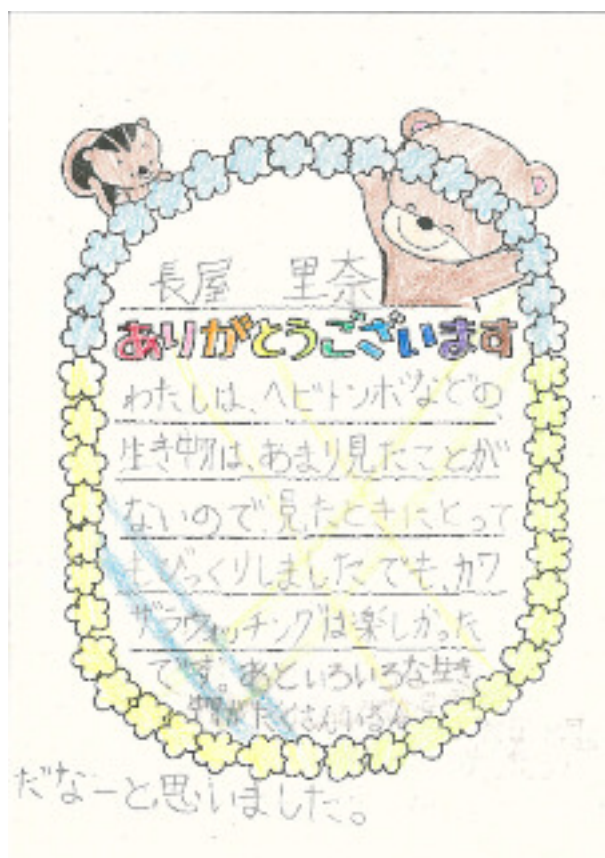 長屋 里奈
ありがとうございます
わたしは、ヘビトンボなどの
生き物は、あまり見たことが
ないので見たときにとって
もびっくりしましたでも、カワ
ザラウォッチングは楽しかった
です。あといろいろな生き
物がたくさんいるん
だなーと思いました。